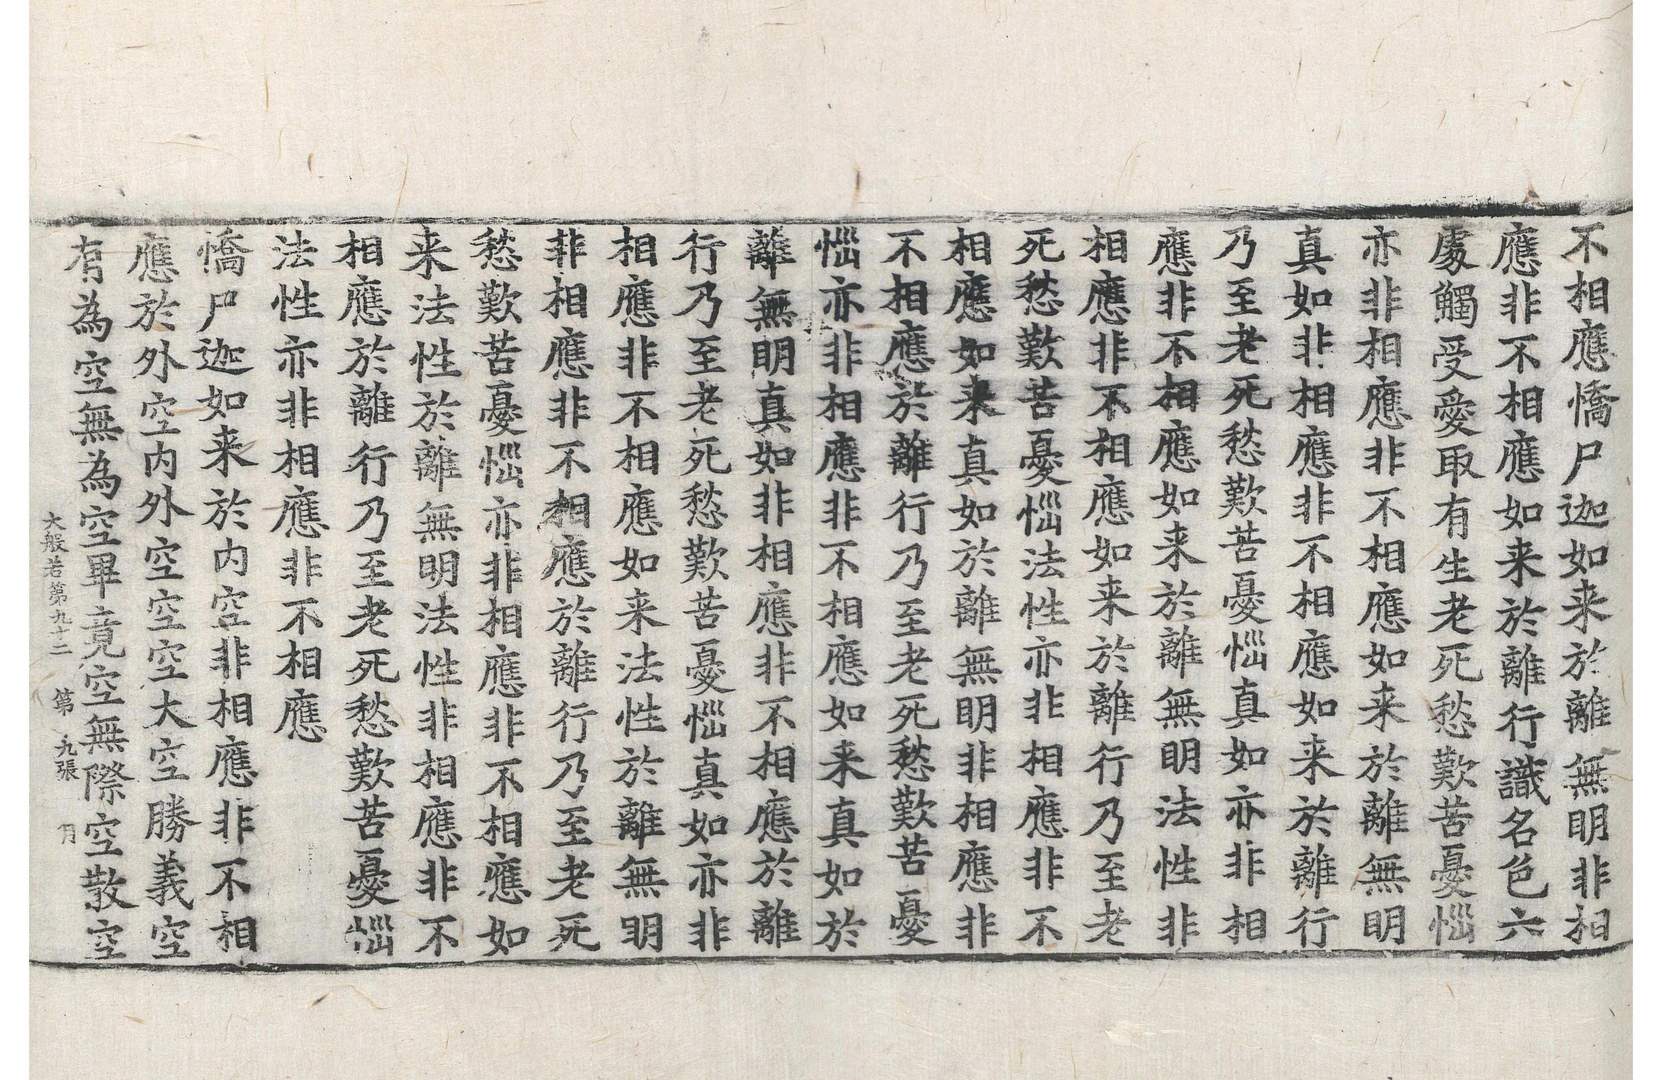 不相應憍尸迦如来於離無明非相
應非不相應如来於離行識名色六
處觸受愛取有生老死愁歎苦憂惱
亦非相應非不相應如来於離無明
真如非相應非不相應如来於離行
乃至老死愁歎苦憂惱真如亦非相
應非不相應如来於離無明法性非
相應非不相應如来於離行乃至老
死愁歎苦憂惱法性亦非相應非不
相應如来真如於離無明非相應非
不相應於離行乃至老死愁歎苦憂
惱亦非相應非不相應如来真如於
離無明真如非相應非不相應於離
行乃至老死愁歎苦憂惱真如亦非
相應非不相應如来法性於離無明
非相應非不相應於離行乃至老死
愁歎苦憂惱亦非相應非不相應如
来法性於離無明法性非相應非不
相應於離行乃至老死愁歎苦憂惱
法性亦非相應非不相應
憍尸迦如来於内空非相應非不相
應於外空内外空空空大空勝義空
有為空無為空畢竟空無際空散空
大般若第九十二 第九張 月